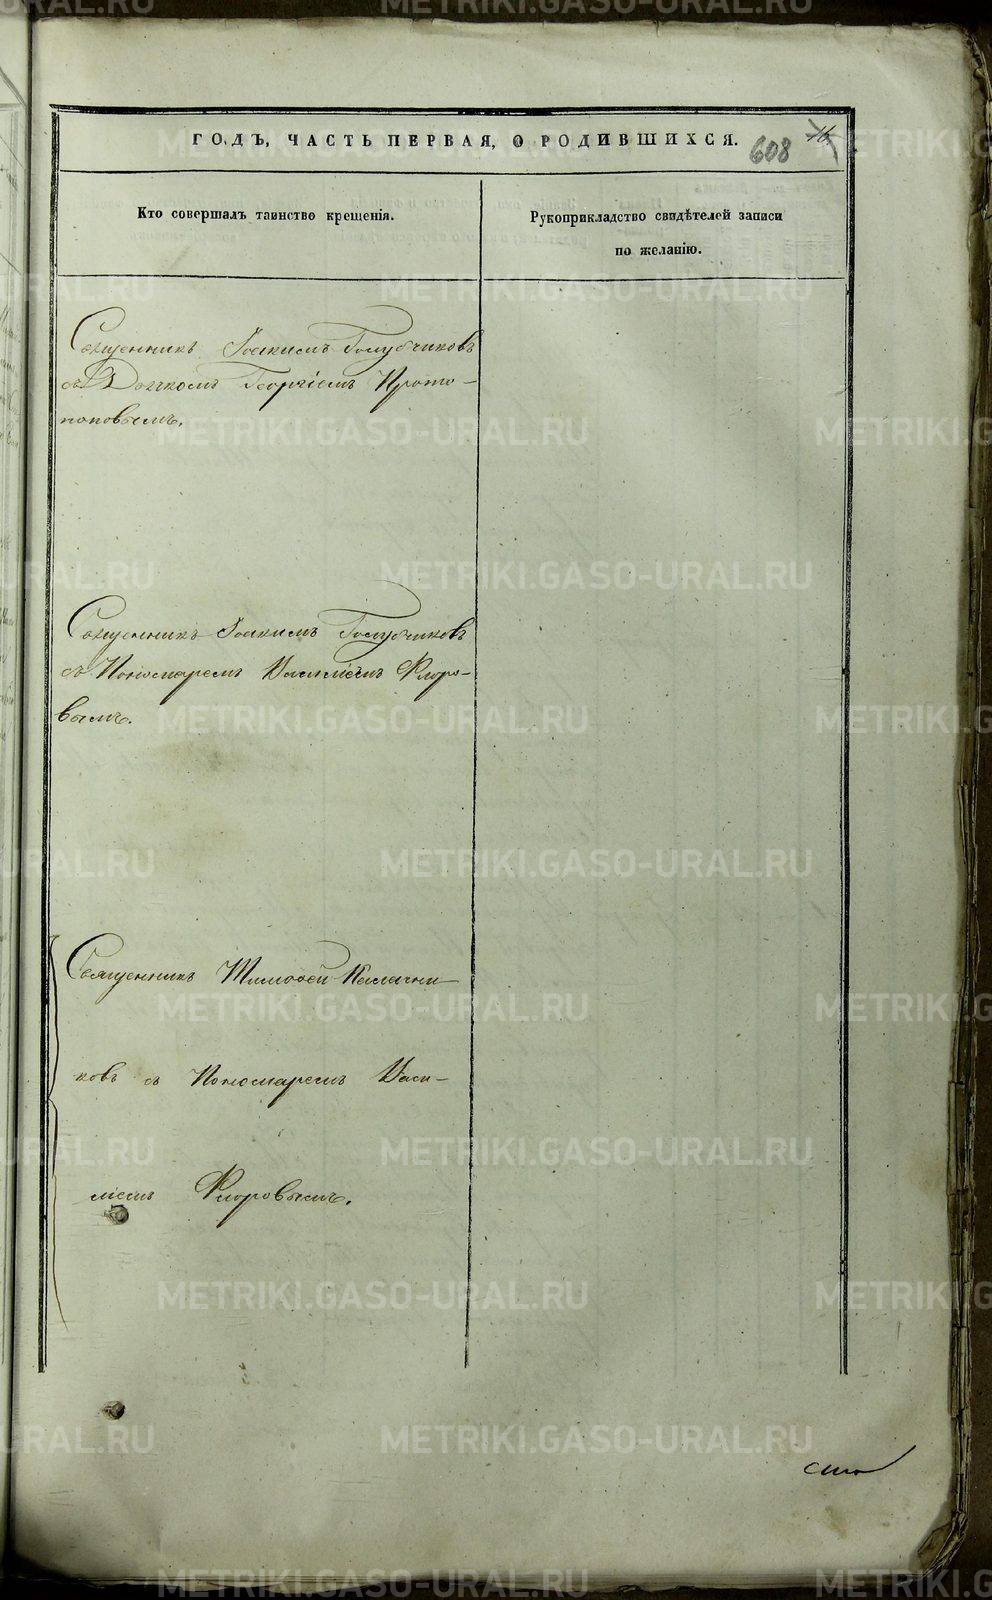 ГОДЪ, ЧАСТЬ ПЕРВАЯ, О РОДИВШИХСЯ.
608
16
Кто совершалъ таинство крещенія.
Рукоприкладство свидѣтелей записи
по желанію.
Священникъ Іоакимъ Голубчиковъ
съ Дьячкомъ Георгіемъ Прото-
поповымъ.
Священникъ Іоакимъ Голубчиковъ
съ Пономаремъ Василіемъ Флоро-
вымъ.
Священникъ Тимофей Калачни-
ковъ съ Пономаремъ Васи-
ліемъ Флоровымъ.
сто
METRIKI.GASO-URAL.RU